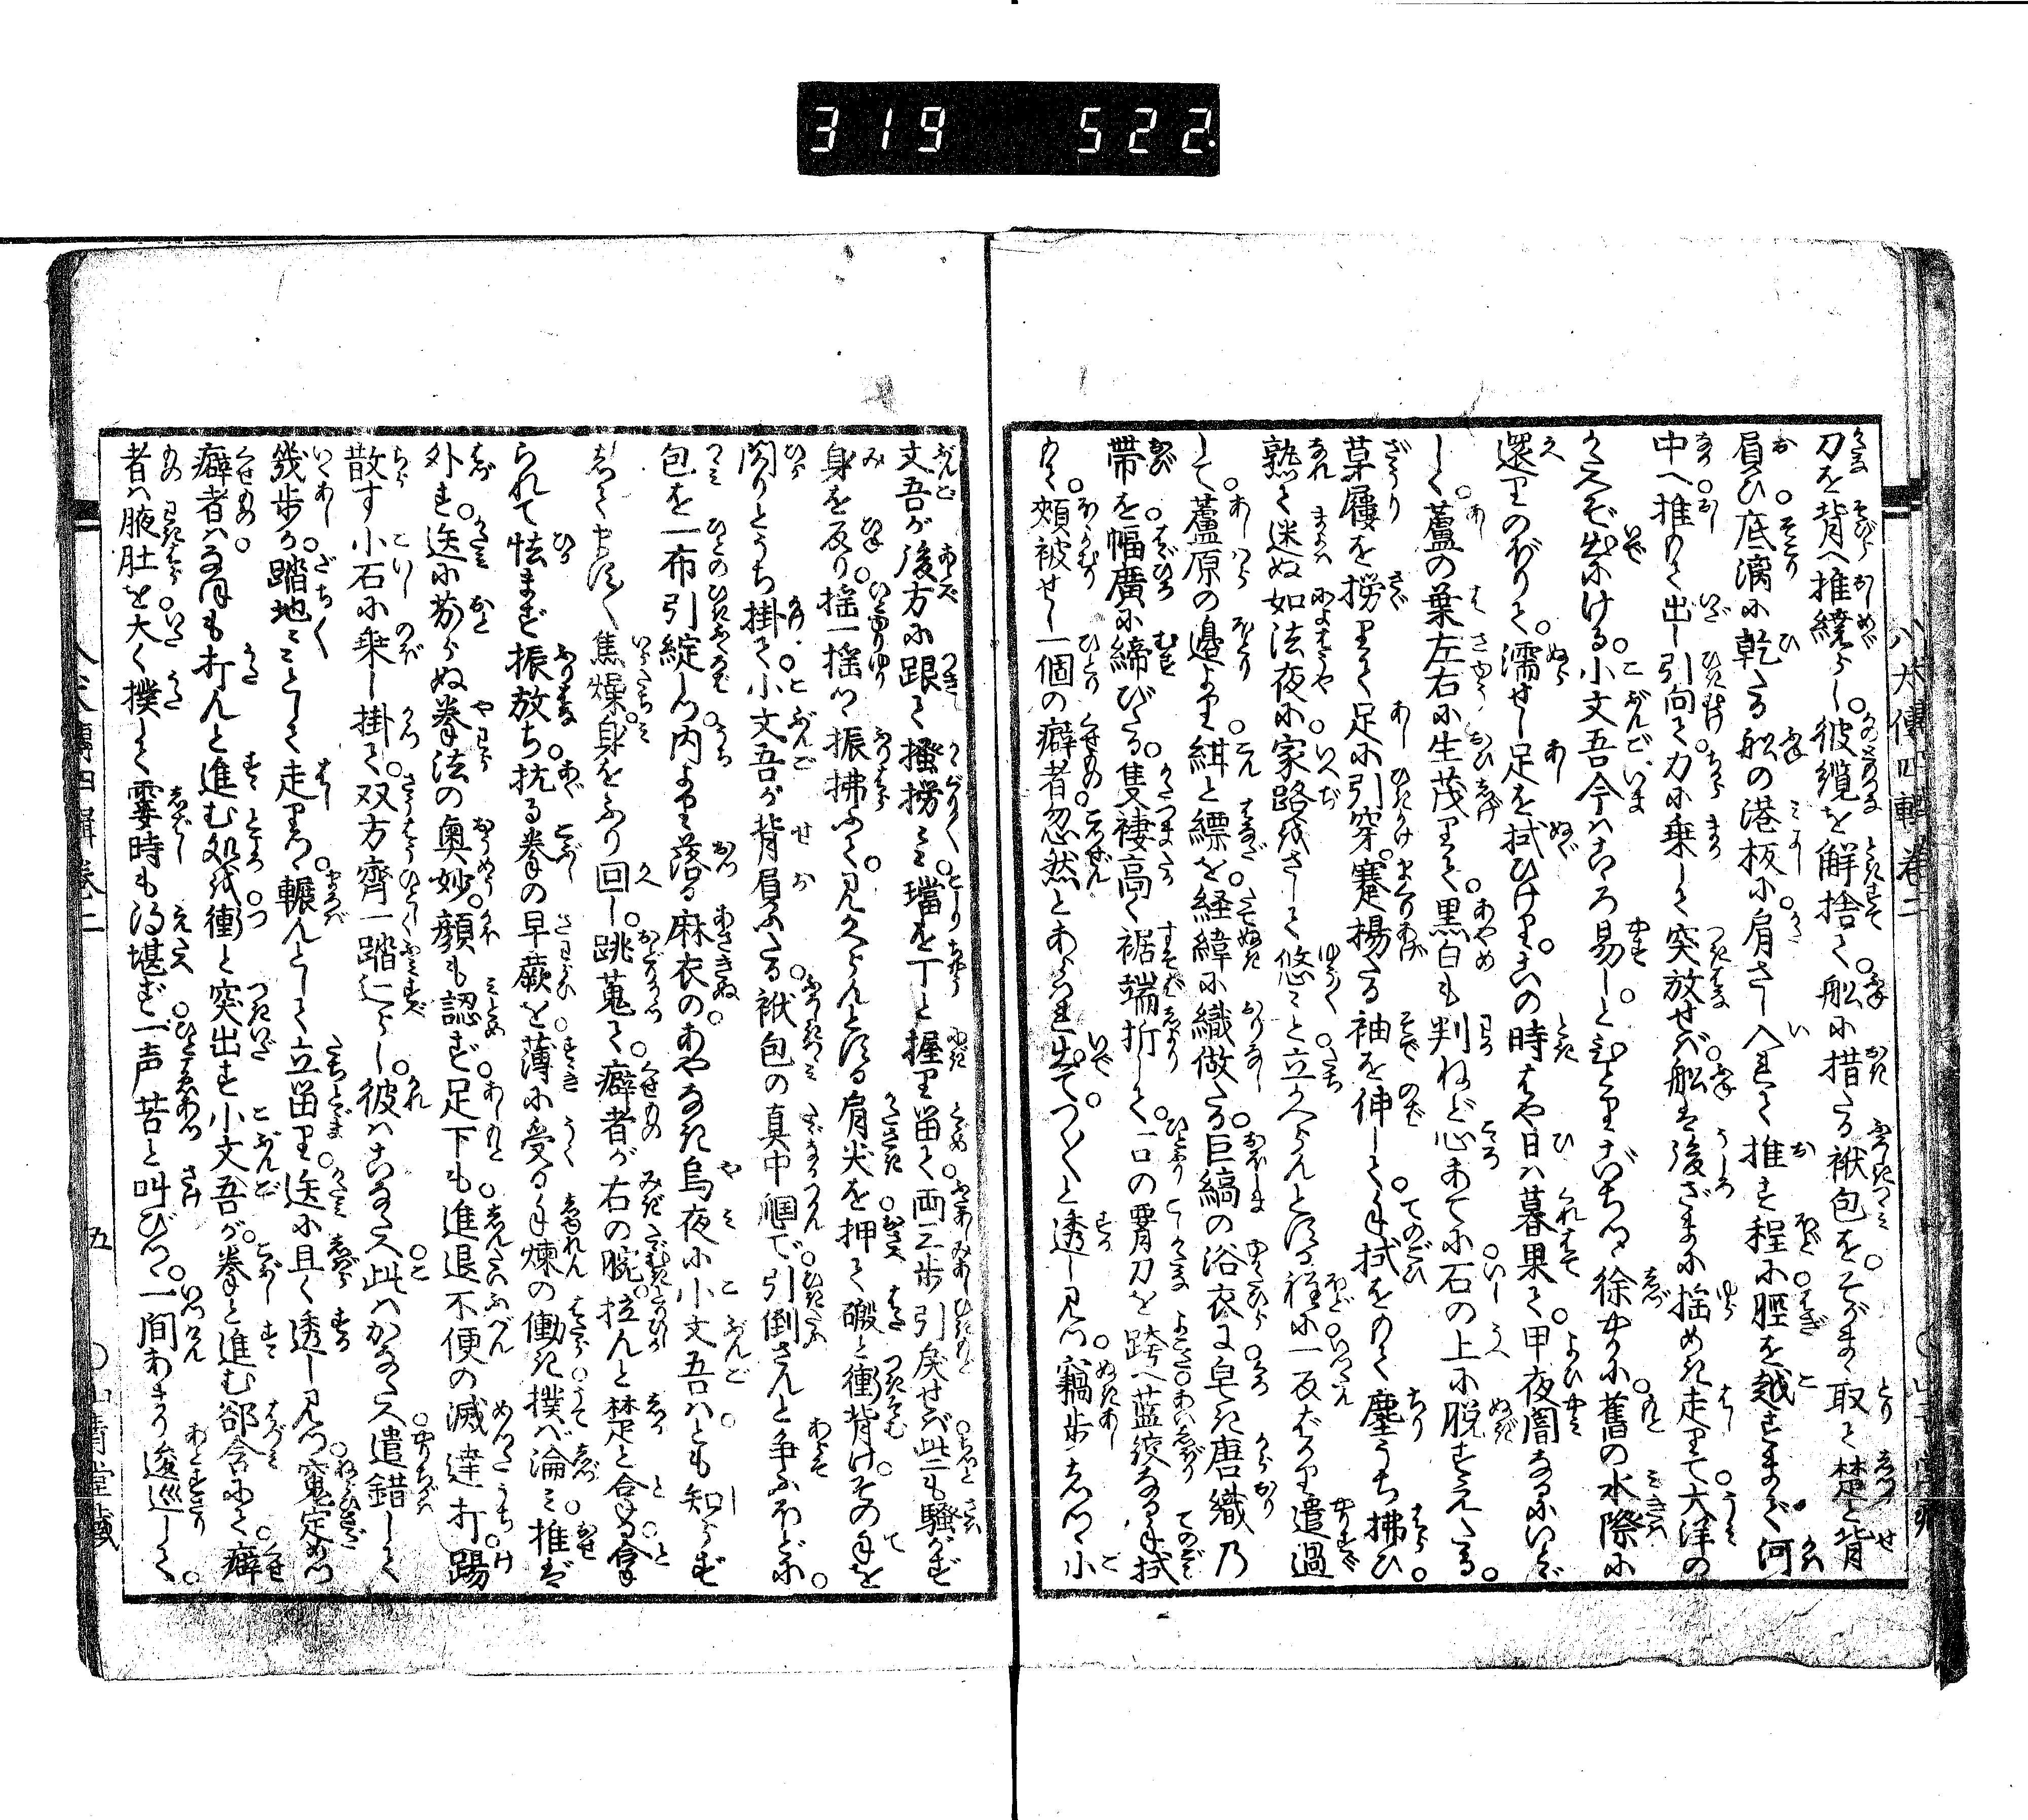 319 522
八犬傳四輯卷二
刀を背へ推繞らし。彼纜を觧捨て。舩に措たる袱包をそがまゝ取て楚と背
負ひ。底漓に乾たる舩の港板に肩さし入れて推す程に。脛を越すまで河
中へ推のて出し引向て力に乗して突放せば。舩は後ざまに揺めき走りて。大洋の
かたへぞ出にける。小文吾今はこゝろ易しとひとりごちつゝ徐やかに。舊の水際に
還りのぼりて。濡せし足を拭ひけり。この時はや日は暮果て。甲夜闇なるにいとゞ
しく。蘆の葉左右に生茂りて。黒白も判ねど心あてに。石の上に脱すえたる。
草履を撈りて足に引穿。蹇揚たる袖を伸して。手拭をのて塵うち拂ひ。
熟て迷ぬ如法夜に。家路をさして悠々と立かへらんとする程に。一反ばかり遣過
して。蘆原の邉より。紺と縹を経緯に織做たる。巨縞の浴衣に皂き唐織乃
帶を幅廣に締びたる。隻褄高く裾端折して。一口の霄刀を跨へ。藍絞なる手拭
もて。頬被せし一個の癖者。忽然とあらはれ出て。つく〳〵と透し見つ。竊歩しつゝ小
文吾が後方に跟て掻撈り。璫を丁と握り畄て。両三歩引戻せば。些も騒がず
身を反り。揺一揺つゝ振拂ふて。見かへらんとする肩尖を。押て礑と衝背け。その手を
閃りとうち掛て。小文吾が背負ふたる。袱包の真中𢌞で。引倒さんと争ふほどに。
包を一布引綻しつ。内より落る麻衣の。あやなき烏夜に小文吾は。とも知らず
してます〳〵焦燥。身をふり回し。跳蒐て。癖者が右の腕。拉んと楚と合す。拿
られて怯まず振放ち。抗る拳の早蕨を。薄に受る手煉の働き。撲ば淪み。推せば
外す。送に劣らぬ拳法の奥妙。顔も認ず。足下も。進退不便の滅達打。踢
散す小石に乗し掛て。双方齊一踏辷らし。彼はこなたへ。此はかなたへ。遣錯して
幾歩か。踏地々々として走りつゝ。轆んとして立畄り。送に且く透し見つ。寬定めつ
癖者は。なほも打んと進む処を。衝と突出す小文吾が。拳と進む郤含にて。癖
者は腋肚を大く撲して霎時も得堪ず。一声苦と叫びつゝ。一間あまり逡巡して。
五
山青堂藏